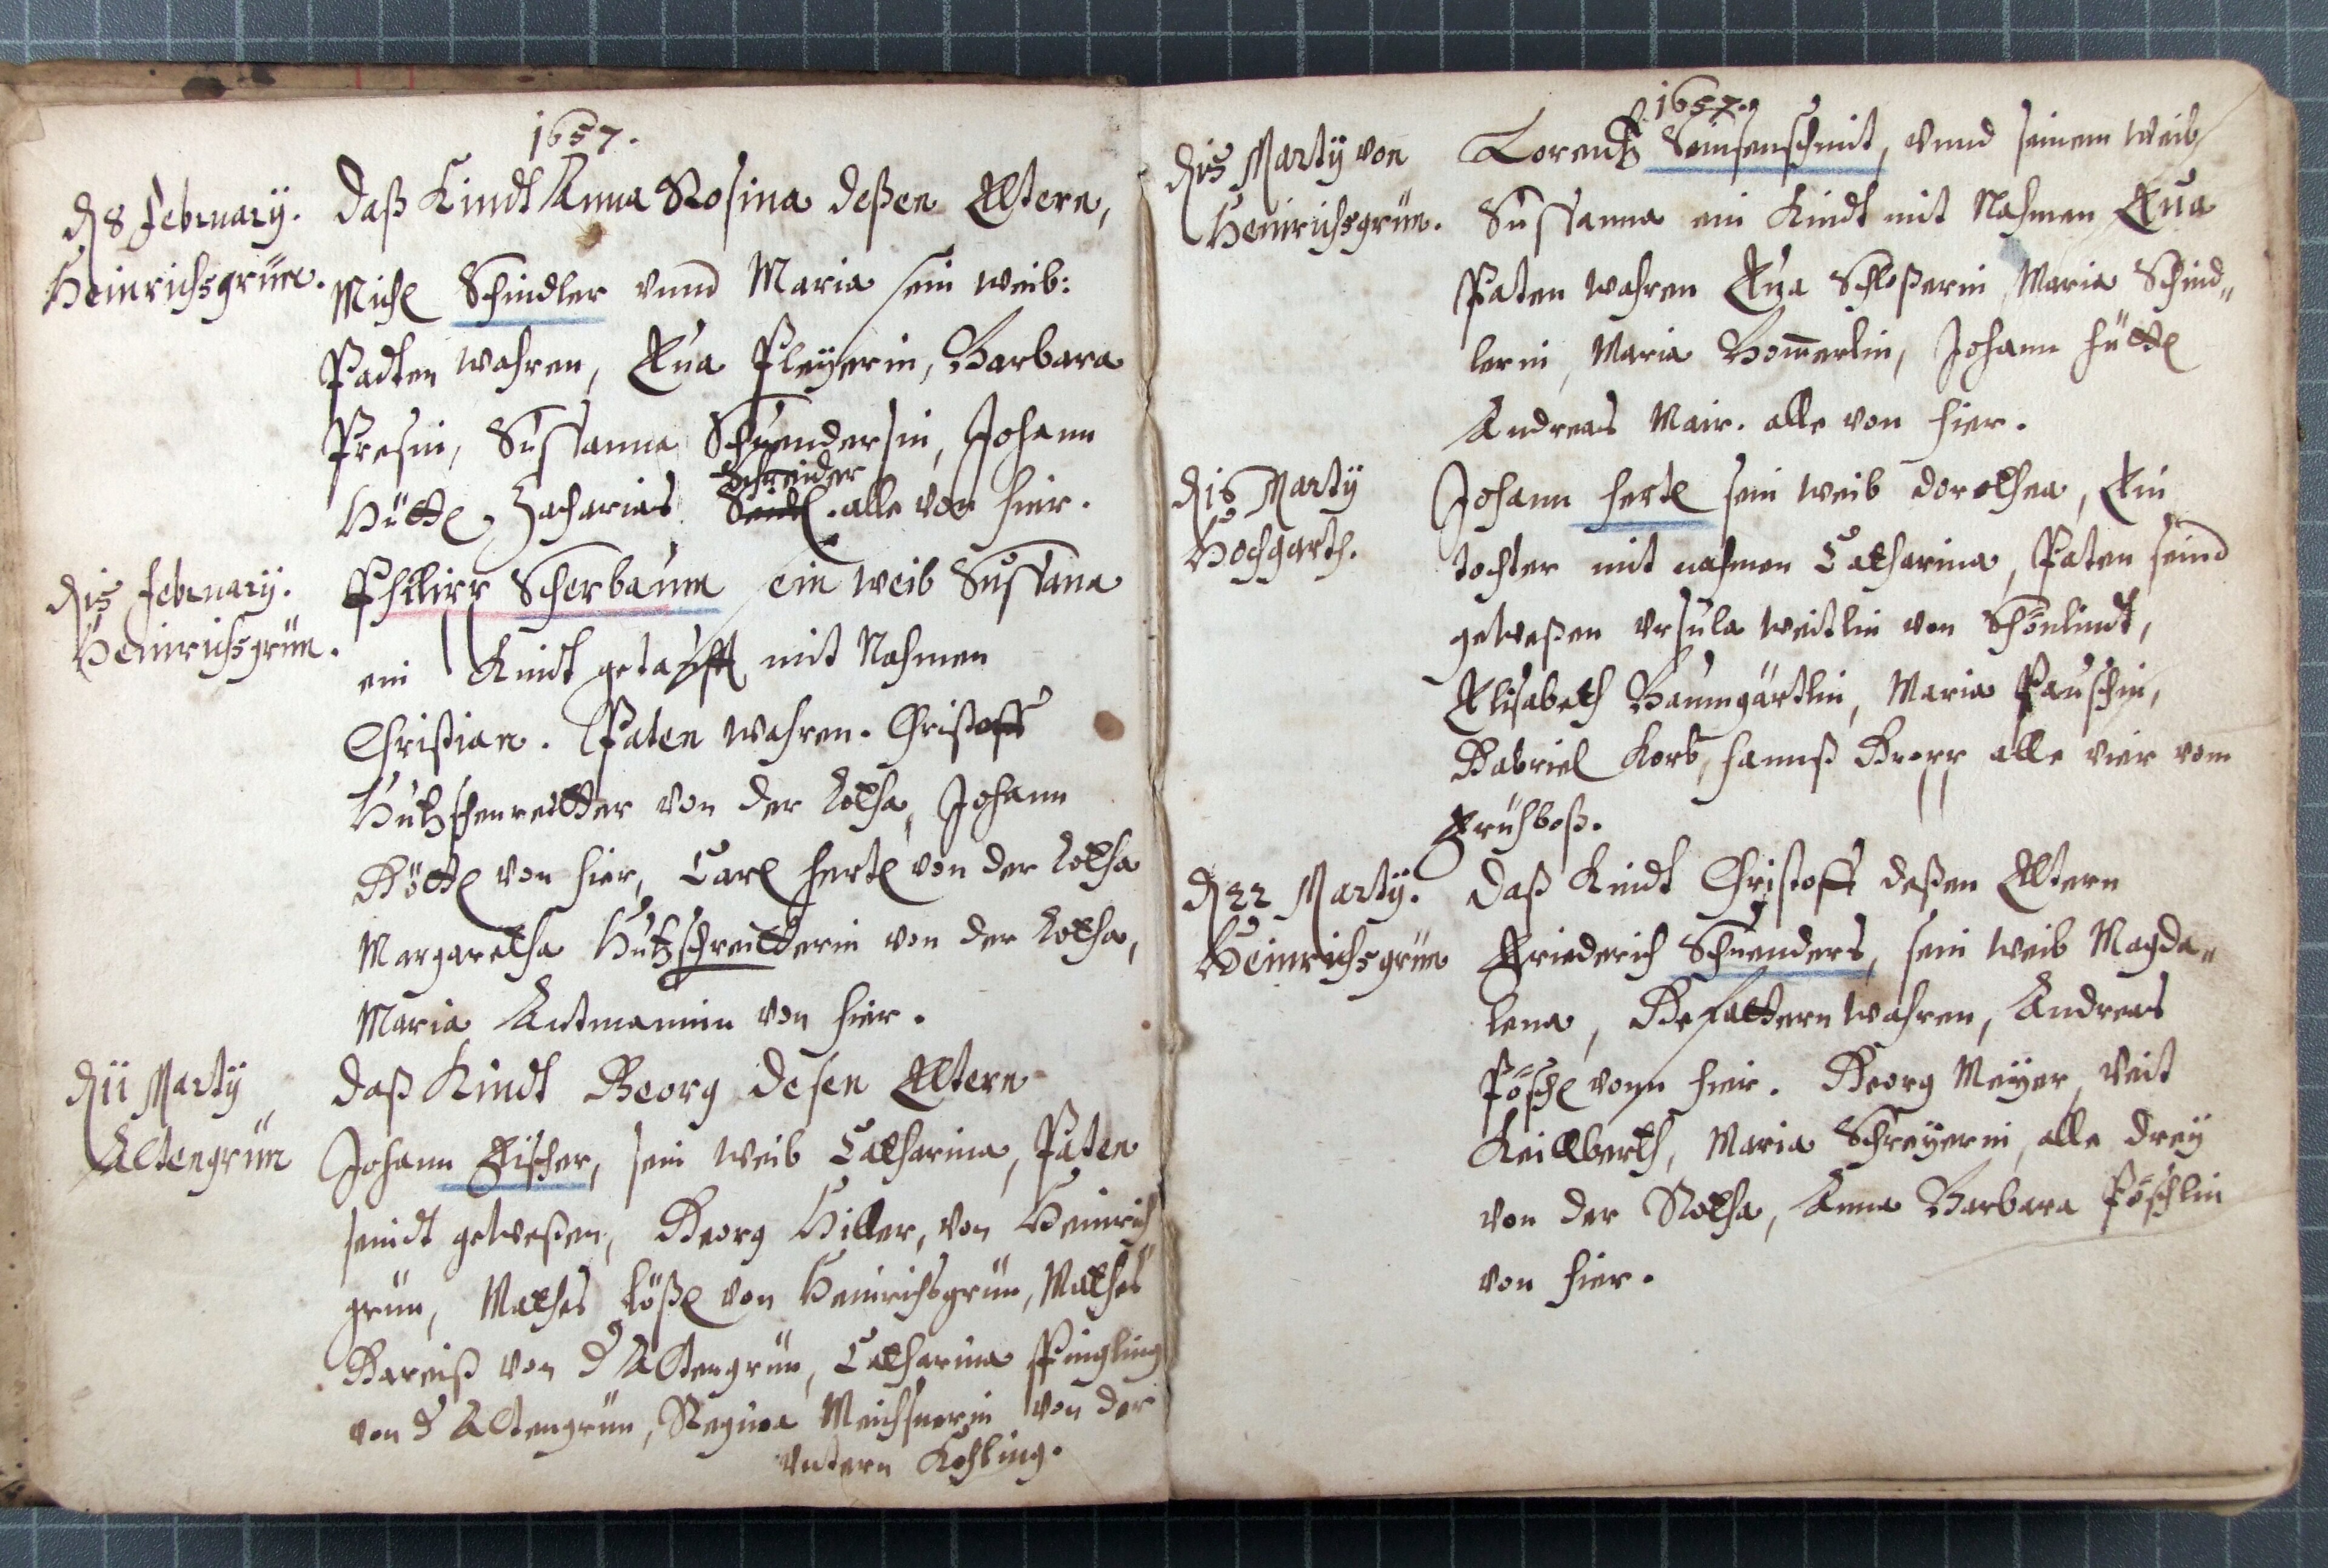 1657.
d 8 February.
Heinrichsgrün.
Daß Kindt Anna Rosina deßen Eltern,
Michl Schindler vnnd Maria sein weib:
Padten wahren, Eua Pleyerin, Barbara
Presin, Sussanna Schuendersin, Johann
Schreider
Hüttl, Zacharias Seidl. alle von hier.
d 15 February.
Heinrichsgrün.
Philipp Scherbaum sein weib Sussana
ein Kindt getaufft mit Nahmen
Christian. Paten wahren. Christoff
Hutzschenreitter von der Rotha, Johann
Göttl von hier, Carl hertl von der Rotha
Margaretha Hutzschreitterin von der Rotha,
Maria Antmannin von hier.
d 11 Marty
Altengrün
Daß Kindt Georg desen Eltern
Johann Fischer, sein weib Catharina, Paten
seindt geweßen, Georg Hiller, von Heinrich
grün, Mathes Lößl von Heinrichsgrün, Mathes
Gareiß von d Altengrün, Catharina Pingling
von d Altengrün, Regina Meichsnerin von der
vntern Kohling.
1657.
d 15 Marty von
Heinrichsgrün.
Lorentz Seinsenschmit, vnnd seinem weib
Sussanna ein Kindt mit Nahmen Eua
Paten wahren Eua Schloßerin, Maria Schind„
lerin, Maria Bom̄erlin, Johann hüttl
Andreas Mair. alle von hier.
d 16 Marty
Hochgarth.
Johann hertl sein weib dorothea, Ein
tochter mit nahmen Catharina, Paten seind
geweßen vrsula weidtlin von Schönlindt,
Elisabeth Baumgärtlin, Maria Pauschin,
Gabriel Korb, hannß Gropp alle vier vom
Frühboß.
d 22 Marty.
Heinrichsgrün
Daß Kindt Christoff deßen Eltern
Friederich Schuenders, sein weib Magda„
lena, Gefattern wahren, Andreas
Pöschl vonn hier. Georg Meyer, Veit
Keillberth, Maria Schreyerin, alle drey
von der Rotha, Anna Barbara Pöschlin
von hier.